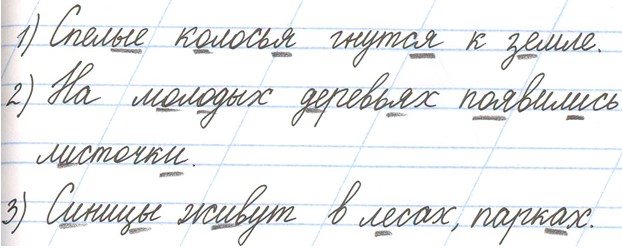 1) Спелые колосья гнутся к земле.
2) На молодых деревьях появились
листочки.
3) Синицы живут в лесах, парках.